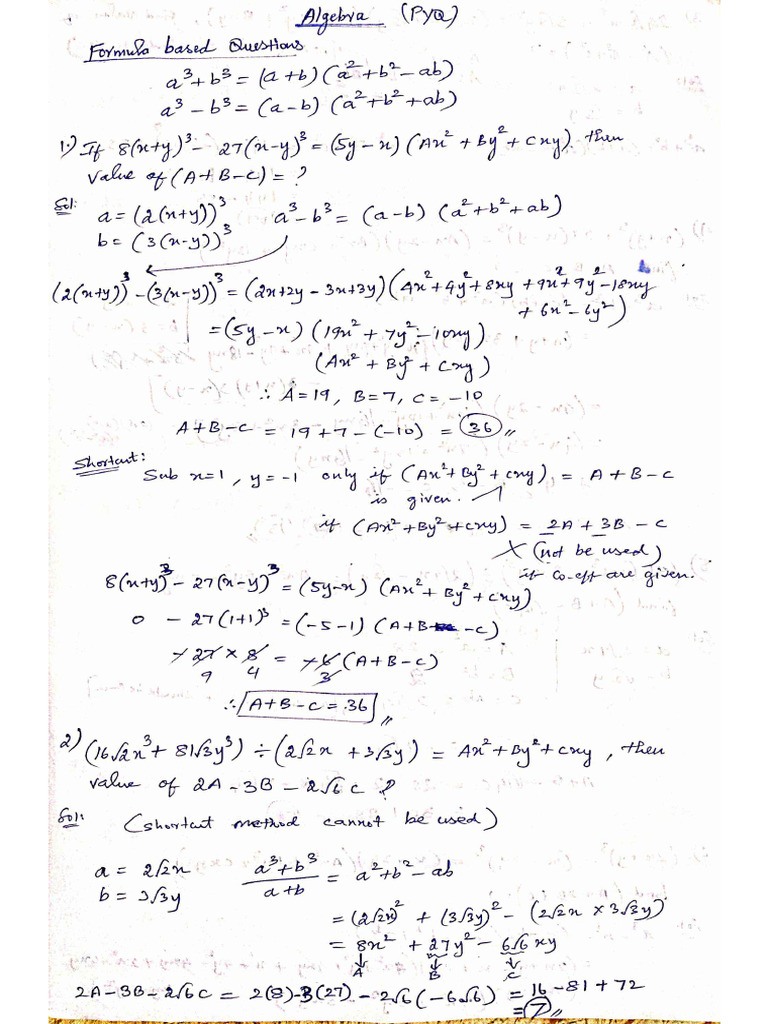 Algebra (PYQ)
Formula based Questions
a³+b³ = (a+b) (a²+b²-ab)
a³-b³ = (a-b) (a²+b²+ab)
1.) If 8(x+y)³ - 27(x-y)³ = (5y-x) (Ax²+By²+Cxy). then
value of (A+B-C) = ?
Sol:
a = (2(x+y))³ a³-b³ = (a-b) (a²+b²+ab)
b = (3(x-y))³
(2(x+y))³ - (3(x-y))³ = (2x+2y-3x+3y) (4x²+4y²+8xy+9x²+9y²-18xy
+ 6x²-6y²)
= (5y-x) (19x²+7y²-10xy)
(Ax²+By²+Cxy)
∴ A=19, B=7, C=-10
A+B-C = 19+7-(-10) = 36 //
Shortcut:
Sub x=1, y=-1 only if (Ax²+By²+Cxy) = A+B-C
is given.
if (Ax²+By²+Cxy) = 2A+3B-C
X (not be used)
if co-eff are given.
8(x+y)³ - 27(x-y)³ = (5y-x) (Ax²+By²+Cxy)
0 - 27(1+1)³ = (-5-1) (A+B-C)
-27 × 8 = -6 (A+B-C)
9 4 3
∴ A+B-C = 36 //
2) (16√2x³ + 81√3y³) ÷ (2√2x + 3√3y) = Ax²+By²+Cxy, then
value of 2A-3B-2√6C ?
Sol: (shortcut method cannot be used)
a = 2√2x a³+b³ / a+b = a²+b²-ab
b = 3√3y
= (2√2x)² + (3√3y)² - (2√2x × 3√3y)
= 8x² + 27y² - 6√6xy
A B C
2A-3B-2√6C = 2(8)-3(27)-2√6(-6√6) = 16-81+72
= 7 //